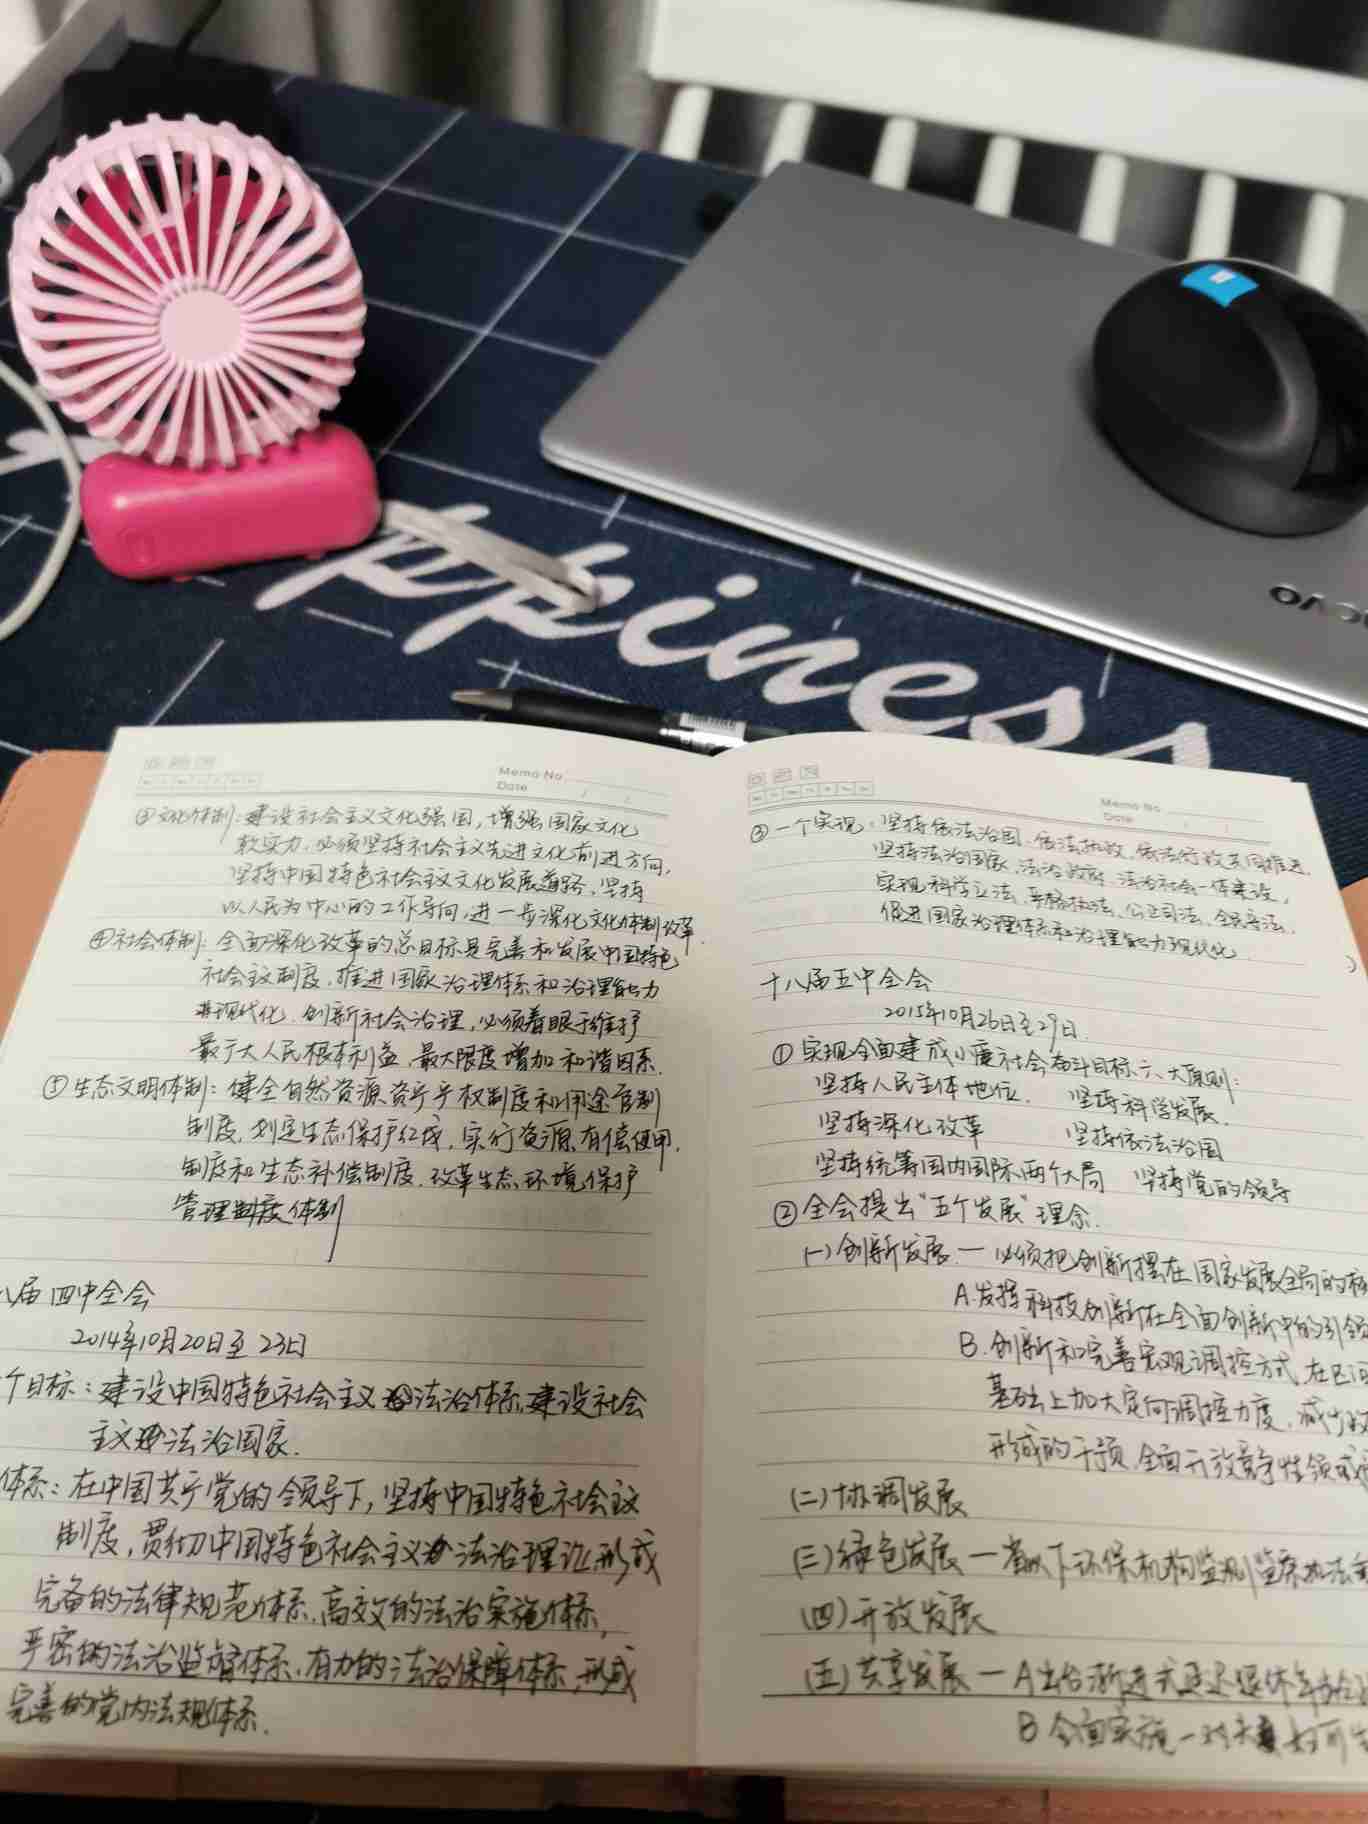 ppiness
lenovo
Memo No
Date
③文化体制:建设社会主义文化强国,增强国家文化
软实力,必须坚持社会主义先进文化前进方向,
坚持中国特色社会主义文化发展道路,坚持
以人民为中心的工作导向,进一步深化文化体制改革.
④社会体制:全面深化改革的总目标是完善和发展中国特色
社会主义制度,推进国家治理体系和治理能力
现代化.创新社会治理,必须着眼于维护
最广大人民根本利益,最大限度增加和谐因素.
⑤生态文明体制:健全自然资源资产产权制度和用途管制
制度,划定生态保护红线,实行资源有偿使用
制度和生态补偿制度.改革生态环境保护
管理体制
八届四中全会
2014年10月20日至23日
个目标:建设中国特色社会主义法治体系,建设社会
主义法治国家.
体系:在中国共产党的领导下,坚持中国特色社会主义
制度,贯彻中国特色社会主义法治理论,形成
完备的法律规范体系,高效的法治实施体系,
严密的法治监督体系,有力的法治保障体系,形成
完善的党内法规体系.
Memo No
Date
③一个实现:坚持依法治国、依法执政、依法行政共同推进,
坚持法治国家、法治政府、法治社会一体建设,
实现科学立法、严格执法、公正司法、全民守法,
促进国家治理体系和治理能力现代化.
十八届五中全会
2015年10月26日至29日.
①实现全面建成小康社会奋斗目标六大原则:
坚持人民主体地位. 坚持科学发展.
坚持深化改革 坚持依法治国
坚持统筹国内国际两个大局 坚持党的领导
②全会提出"五个发展"理念.
(一)创新发展—必须把创新摆在国家发展全局的核
A.发挥科技创新在全面创新中的引领
B.创新和完善宏观调控方式,在区间
基础上加大定向调控力度,减少政
形成的干预,全面开放竞争性领域
(二)协调发展
(三)绿色发展—省以下环保机构监测监察执法垂
(四)开放发展
(五)共享发展—A出台渐进式延迟退休年龄
B 全面实施一对夫妻可生